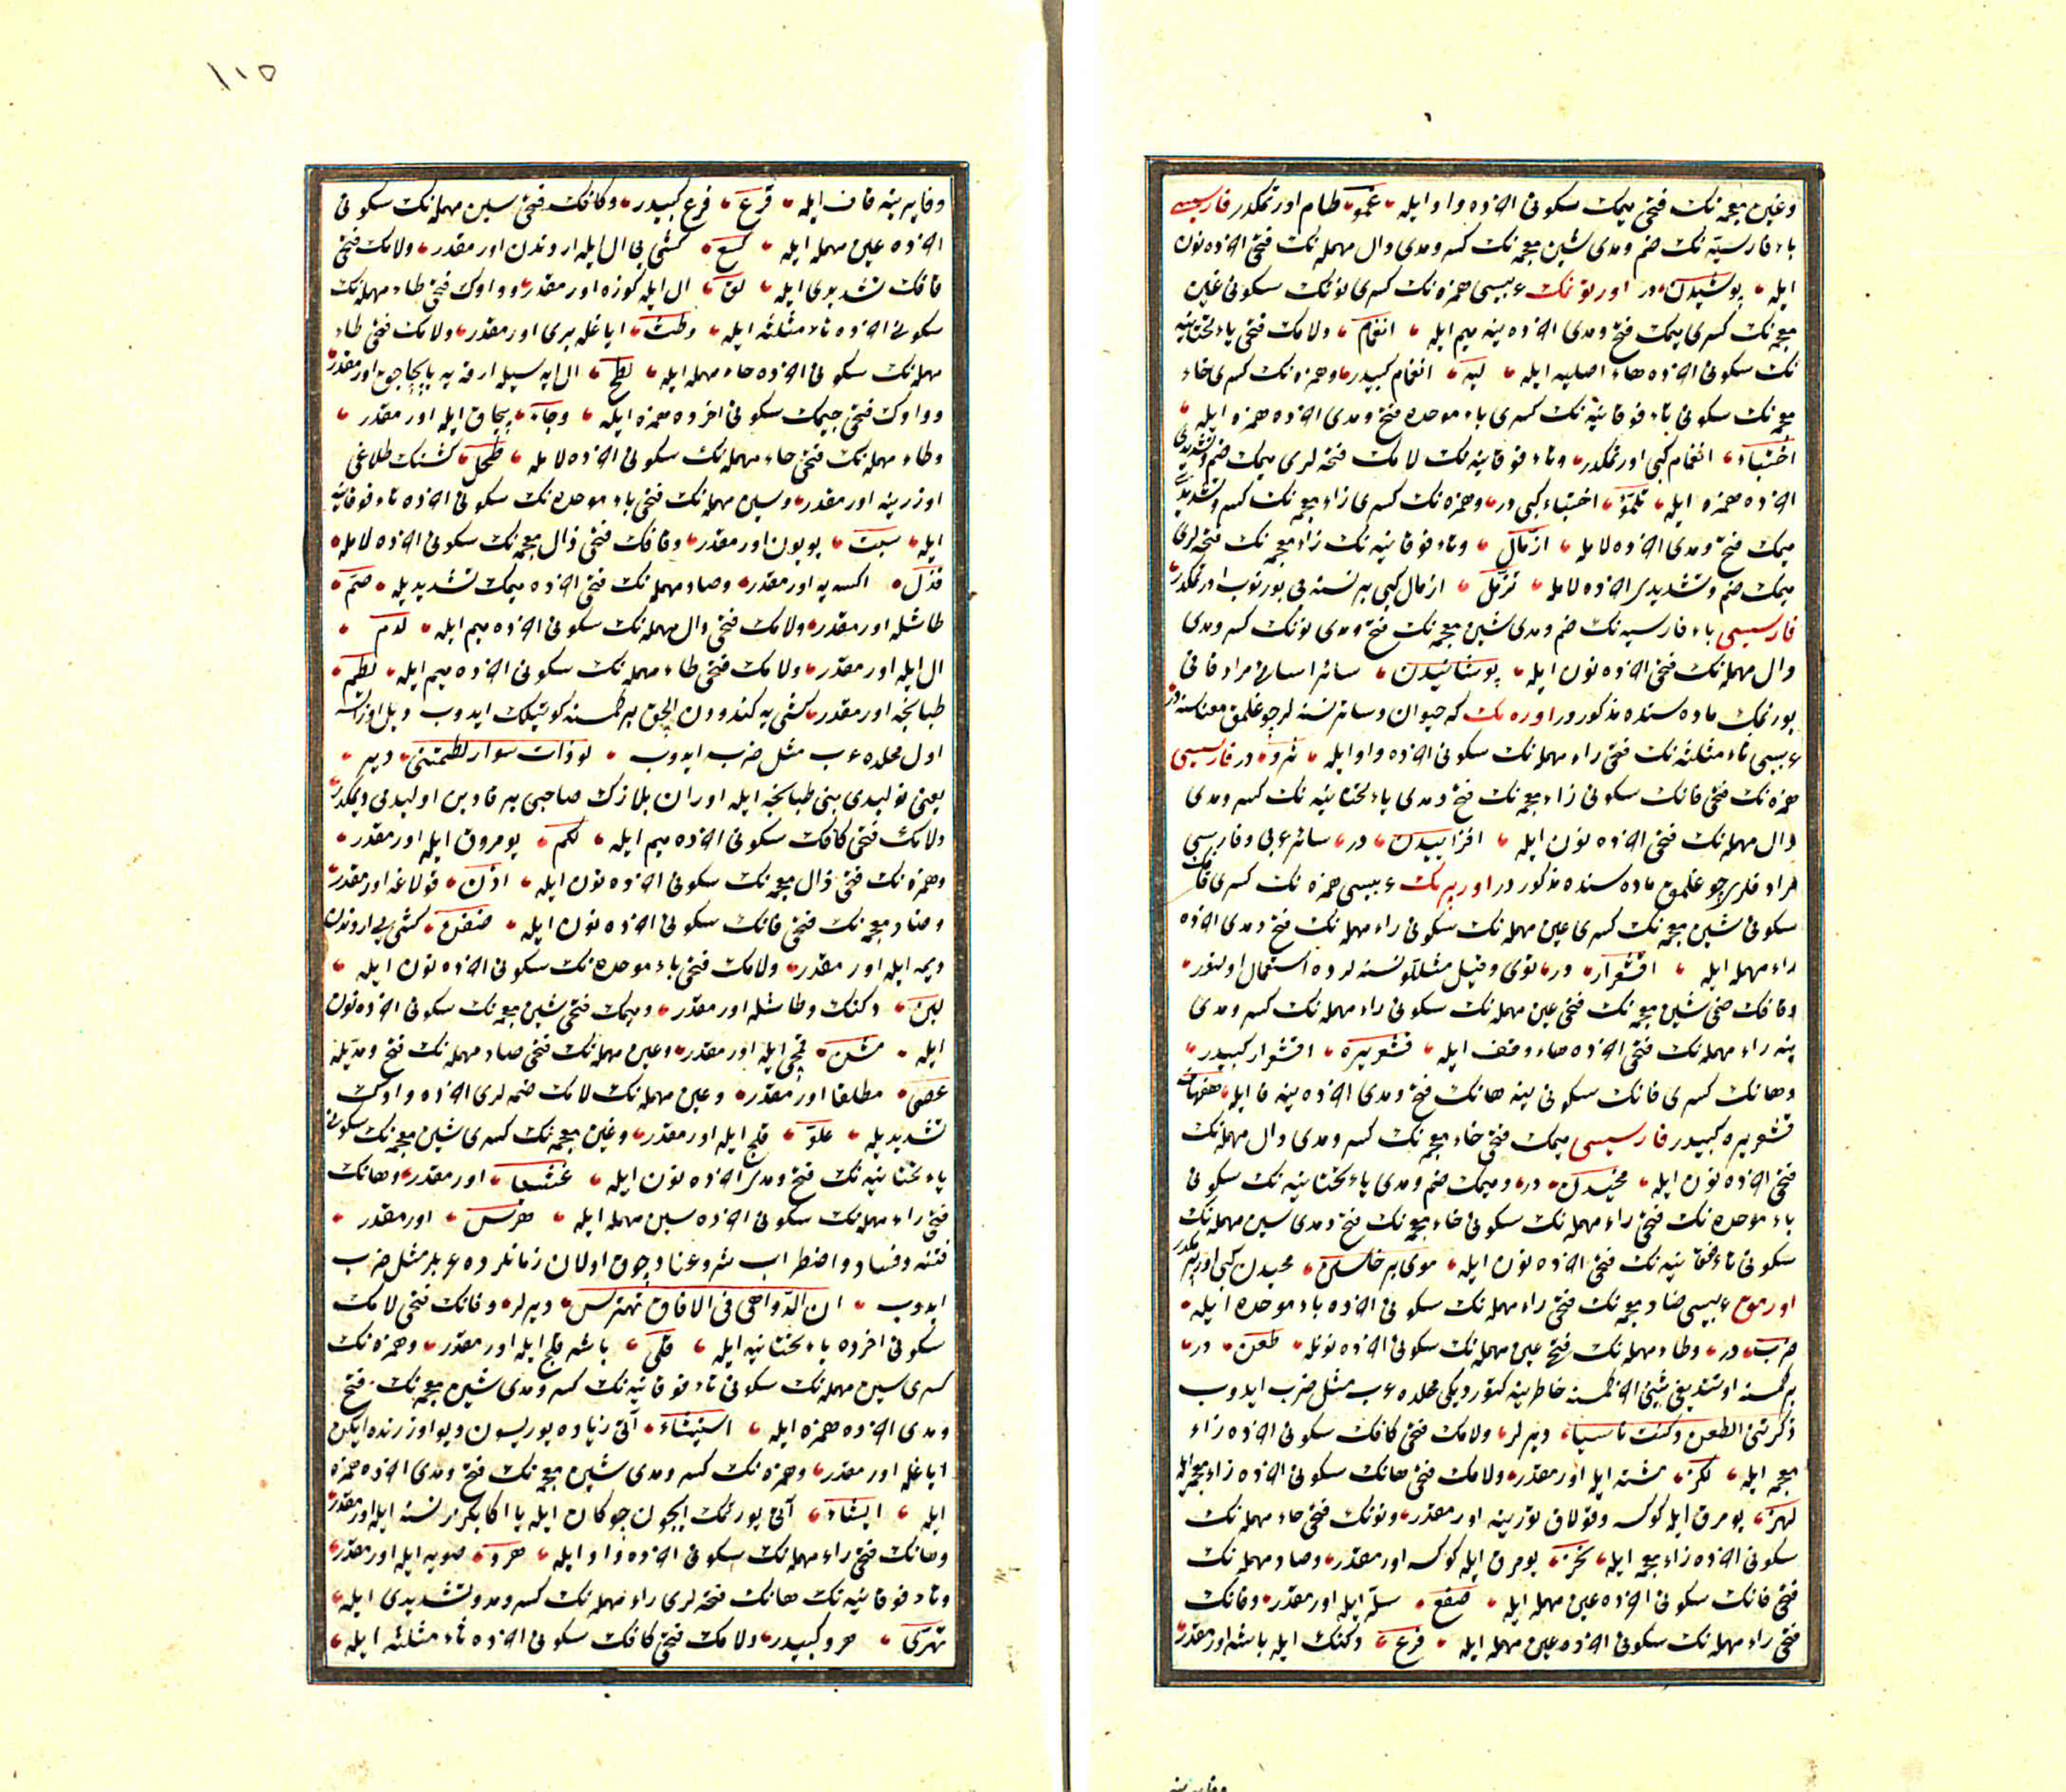 وغین معجمه نک فتحی میمک سکونی اخرده واو ایله غمو طام اورتمکدر فارسیسی
باء فارسیه نک ضم ومدی شین معجمه نک کسر ومدی دال مهمله نک فتحی اخرده نون
ایله پوشیدن در اورتونمک عربیسی همزه نک کسری نونک سکونی غین
معجمه نک کسری میمک فتح ومدی اخرده ینه میم ایله انغمام ولامک فتحی یاء تحتانیه
نک سکونی اخرده هاء اصلیه ایله لیه انغمام کبیدر وهمزه نک کسری خاء
معجمه نک سکونی تاء فوقانیه نک کسری باء موحده فتح ومدی اخرده همزه ایله
اختباء انغمام کبی اورتمکدر وتاء فوقانیه نک لامک فتحه لری میمک ضم وتشدیدی
اخرده همزه ایله تلمؤ اختباء کبی در وهمزه نک کسری زاء معجمه نک کسر وتشدیدی
میمک فتح ومدی اخرده لامله ازمال وتاء فوقانیه نک زاء معجمه نک فتحه لری
میمک ضم وتشدیدی اخرده لامله تزمل ازمال کبی بر نسنه نی بورنوب اورتمکدر
فارسیسی باء فارسیه نک ضم ومدی شین معجمه نک فتح ومدی نونک کسر ومدی
دال مهمله نک فتحی اخرده نون ایله پوشانیدن سائر اسامئ مرادفانی
بورنمک ماده سنده مذکوردر اوره مک که حیوان وسائر نسنه لر چوغلمق معناسنه در
عربیسی ثاء مثلثه نک فتحی راء مهمله نک سکونی اخرده واو ایله ثرو در فارسیسی
همزه نک فتحی فانک سکونی زاء معجمه نک فتح ومدی یاء تحتانیه نک کسر ومدی
دال مهمله نک فتحی اخرده نون ایله افزاییدن در سائر عربی وفارسی
مرادفلری چوغلمق ماده سنده مذکوردر اورپرمک عربیسی همزه نک کسری قافک
سکونی شین معجمه نک کسری عین مهمله نک سکونی راء مهمله نک فتح ومدی اخرده
راء مهمله ایله اقشعرار در توی وقیل مثللو نسنه لرده استعمال اولنور
وقافک ضمی شین معجمه نک فتحی عین مهمله نک سکونی راء مهمله نک کسر ومدی
ینه راء مهمله نک فتحی اخرده هاء وقف ایله قشعریره اقشعرار کبیدر
وهانک کسری فانک سکونی ینه هانک فتح ومدی اخرده ینه فا ایله هفهاف
قشعریره کبیدر فارسیسی میمک فتحی خاء معجمه نک کسر ومدی دال مهمله نک
فتحی اخرده نون ایله مخیدن در ومیمک ضم ومدی یاء تحتانیه نک سکونی
باء موحده نک فتحی راء مهمله نک سکونی خاء معجمه نک فتح ومدی سین مهمله نک
سکونی تاء فوقانیه نک فتحی اخرده نون ایله موی بر خاستن مخیدن کبی اورپرمکدر
اورمق عربیسی ضاد معجمه نک فتحی راء مهمله نک سکونی اخرده باء موحده ایله
ضرب در وطاء مهمله نک فتحی عین مهمله نک سکونی اخرده نونله طعن در
بر کمسنه اونتدیغی شیئی اخر کمسنه خاطرینه کتوردیکی محلده عرب مثل ضرب ایدوب
ذکرتنی الطعن وکنت ناسیا دیرلر ولامک فتحی کافک سکونی اخرده زاء
معجمه ایله لکز مشته ایله اورمقدر ولامک فتحی هانک سکونی اخرده زاء معجمه ایله
لهز یومرق ایله کوکسه وقولاق توزینه اورمقدر ونونک فتحی حاء مهمله نک
سکونی اخرده زاء معجمه ایله نحز یومرق ایله کوکسه اورمقدر وصاد مهمله نک
فتحی فانک سکونی اخرده عین مهمله ایله صفع سله ایله اورمقدر وفانک
فتحی راء مهمله نک سکونی اخرده عین مهمله ایله فرع دکنک ایله باشه اورمقدر
وفایرینه
١١٥
وفا یرینه قاف ایله قرع فرع کبیدر وکافک فتحی سین مهمله نک سکونی
اخرده عین مهمله ایله کسع کشی یی ال ایله اردندن اورمقدر ولامک فتحی
قافک تشدیدی ایله لق ال ایله کوزه اورمقدر وواوک فتحی طاء مهمله نک
سکونی اخرده ثاء مثلثه ایله وطث ایاغله یری اورمقدر ولامک فتحی طاء
مهمله نک سکونی اخرده حاء مهمله ایله لطح ال ایه سیله ارقه یه یاپچاجق اورمقدر
وواوک فتحی جیمک سکونی اخرده همزه ایله وجاء بچاق ایله اورمقدر
وطاء مهمله نک فتحی حاء مهمله نک سکونی اخرده لامله طحل کشینک طلاغی
اوزرینه اورمقدر وسین مهمله نک فتحی باء موحده نک سکونی اخرده تاء فوقانیه
ایله سبت بویون اورمقدر وقافک فتحی ذال معجمه نک سکونی اخرده لامله
قذل اکسه یه اورمقدر وصاد مهمله نک فتحی اخرده میمک تشدیدیله صم
طاشله اورمقدر ولامک فتحی دال مهمله نک سکونی اخرده میم ایله لدم
ال ایله اورمقدر ولامک فتحی طاء مهمله نک سکونی اخرده میم ایله لطم
طبانجه اورمقدر کشی یه کندودن الچق بر کمسنه کوتیلک ایدوب دیل اوزاتسه
اول محلده عرب مثل ضرب ایدوب لو ذات سوار لطمتنی دیر
یعنی نولیدی بنی طبانجه ایله اوران بلازک صاحبی بر قادین اولیدی دیمکدر
ولامک فتحی کافک سکونی اخرده میم ایله لکم یومروق ایله اورمقدر
وهمزه نک فتحی ذال معجمه نک سکونی اخرده نون ایله اذن قولاغه اورمقدر
وضاد معجمه نک فتحی فانک سکونی اخرده نون ایله ضفن کشی یی اردندن
دپمه ایله اورمقدر ولامک فتحی باء موحده نک سکونی اخرده نون ایله
لبن دکنک وطاشله اورمقدر ومیمک فتحی شین معجمه نک سکونی اخرده نون
ایله مشن قمچی ایله اورمقدر وعین مهمله نک فتحی صاد مهمله نک فتح ومدیله
عصی مطلقا اورمقدر وعین مهمله نک لامک ضمه لری اخرده واوک
تشدیدیله علو قلج ایله اورمقدر وغین معجمه نک کسری شین معجمه نک سکونی
یاء تحتانیه نک فتح ومدی اخرده نون ایله غشیان اورمقدر وهانک
فتحی راء مهمله نک سکونی اخرده سین مهمله ایله هرس اورمقدر
فتنه وفساد واضطراب شر وعناد چوق اولان زمانلرده عربلر مثل ضرب
ایدوب ان الدواهی فی الافاق تهترس دیرلر وفانک فتحی لامک
سکونی اخرده یاء تحتانیه ایله فلی باشه قلج ایله اورمقدر وهمزه نک
کسری سین مهمله نک سکونی تاء فوقانیه نک کسر ومدی شین معجمه نک فتح
ومدی اخرده همزه ایله استیشاء آتی زیاده یوریسون دیو اوزرنده ایکن
ایاغله اورمقدر وهمزه نک کسر ومدی شین معجمه نک فتح ومدی اخرده همزه
ایله ایشاء آتی یورتمک ایچون چوکان ایله یا اکا بکزر نسنه ایله اورمقدر
وهانک فتحی راء مهمله نک سکونی اخرده واو ایله هرو صوپه ایله اورمقدر
وتاء فوقانیه نک هانک فتحه لری راء مهمله نک کسر ومد وتشدیدی ایله
تهری هرو کبیدر ولامک فتحی کافک سکونی اخرده ثاء مثلثه ایله